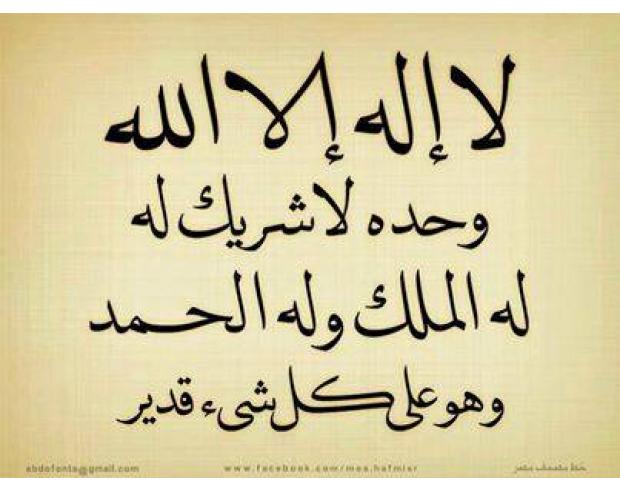 لا إله إلا الله
وحده لا شريك له
له الملك وله الحمد
وهو على كل شىء قدير
abdofonts@gmail.com
www.facebook.com/mos.hafmisr
خط مصحف مصر